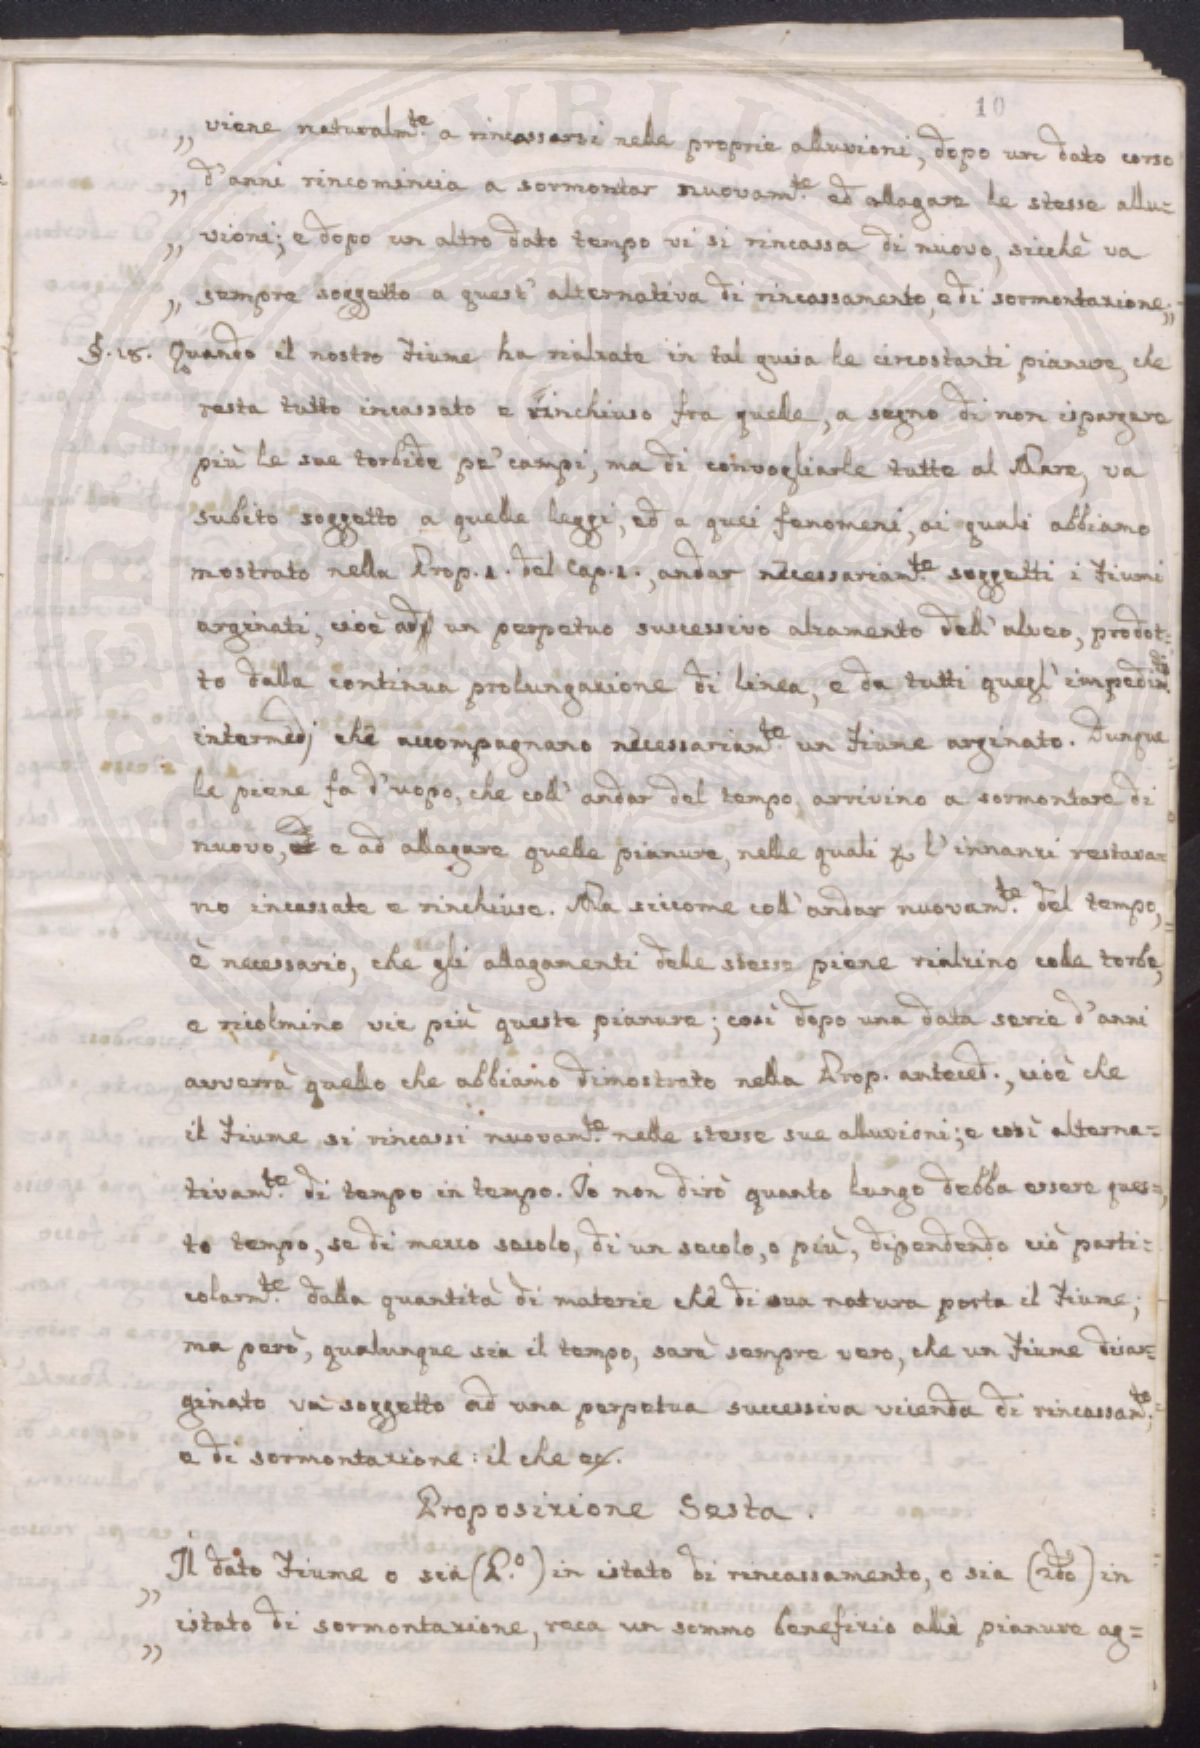 10
„ viene naturalm.te a rincassarsi nelle proprie alluvioni, dopo un dato corso
„ d'anni rincomincia a sormontar nuovam.te ed allagare le stesse allu=
„ vioni; e dopo un altro dato tempo vi si rincassa di nuovo, sicchè va
„ sempre soggetto a quest' alternativa di rincassamento, e di sormontazione;„
§. 18. Quando il nostro Fiume ha rialzate in tal guisa le circostanti pianure, che
resta tutto incassato e rinchiuso fra quelle, a segno di non ispargere
più le sue torbide pe' campi, ma di convogliarle tutte al Mare, va
subito soggetto a quelle leggi, ed a quei fenomeni, ai quali abbiamo
mostrato nella Prop. 1. del Cap. 1., andar necessariam.te soggetti i Fiumi
arginati, cioè ad un perpetuo successivo alzamento dell' alveo, prodot=
to dalla continua prolungazione di linea, e da tutti quegl' impedim.ti
intermedj che accompagnano necessariam.te un Fiume arginato. Dunque
le piene fa d'uopo, che coll' andar del tempo, arrivino a sormontare di
nuovo, e ad allagare quelle pianure, nelle quali p l'innanzi restava=
no incassate e rinchiuse. Ma siccome coll' andar nuovam.te del tempo,
è necessario, che gli allagamenti delle stesse piene rialzino colle torbe,
e ricolmino vie più queste pianure; così dopo una data serie d'anni
avverrà quello che abbiamo dimostrato nella Prop. anteced., cioè che
il Fiume si rincassi nuovam.te nelle stesse sue alluvioni; e così alterna=
tivam.te di tempo in tempo. Io non dirò quanto lungo debba essere ques=
to tempo, se di mezzo secolo, di un secolo, o più, dipendendo ciò parti=
colarm.te dalla quantità di materie che di sua natura porta il Fiume;
ma però, qualunque sia il tempo, sarà sempre vero, che un Fiume disar=
ginato và soggetto ad una perpetua successiva vicenda di rincassam.to,
e di sormontazione: il che ec.
Proposizione Sesta.
„ Il dato Fiume o sia (P.o) in istato di rincassamento, o sia (2do) in
„ istato di sormontazione, reca un sommo benefizio alle pianure ag=